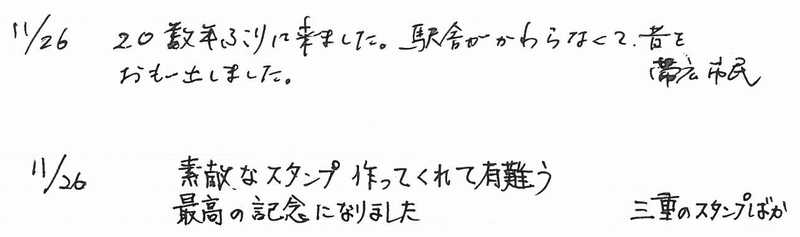 11/26 20数年ぶりに来ました。駅舎がかわらなくて、昔を
おもい出しました。 帯広市民
11/26 素敵なスタンプ作ってくれて有難う
最高の記念になりました 三重のスタンプばか